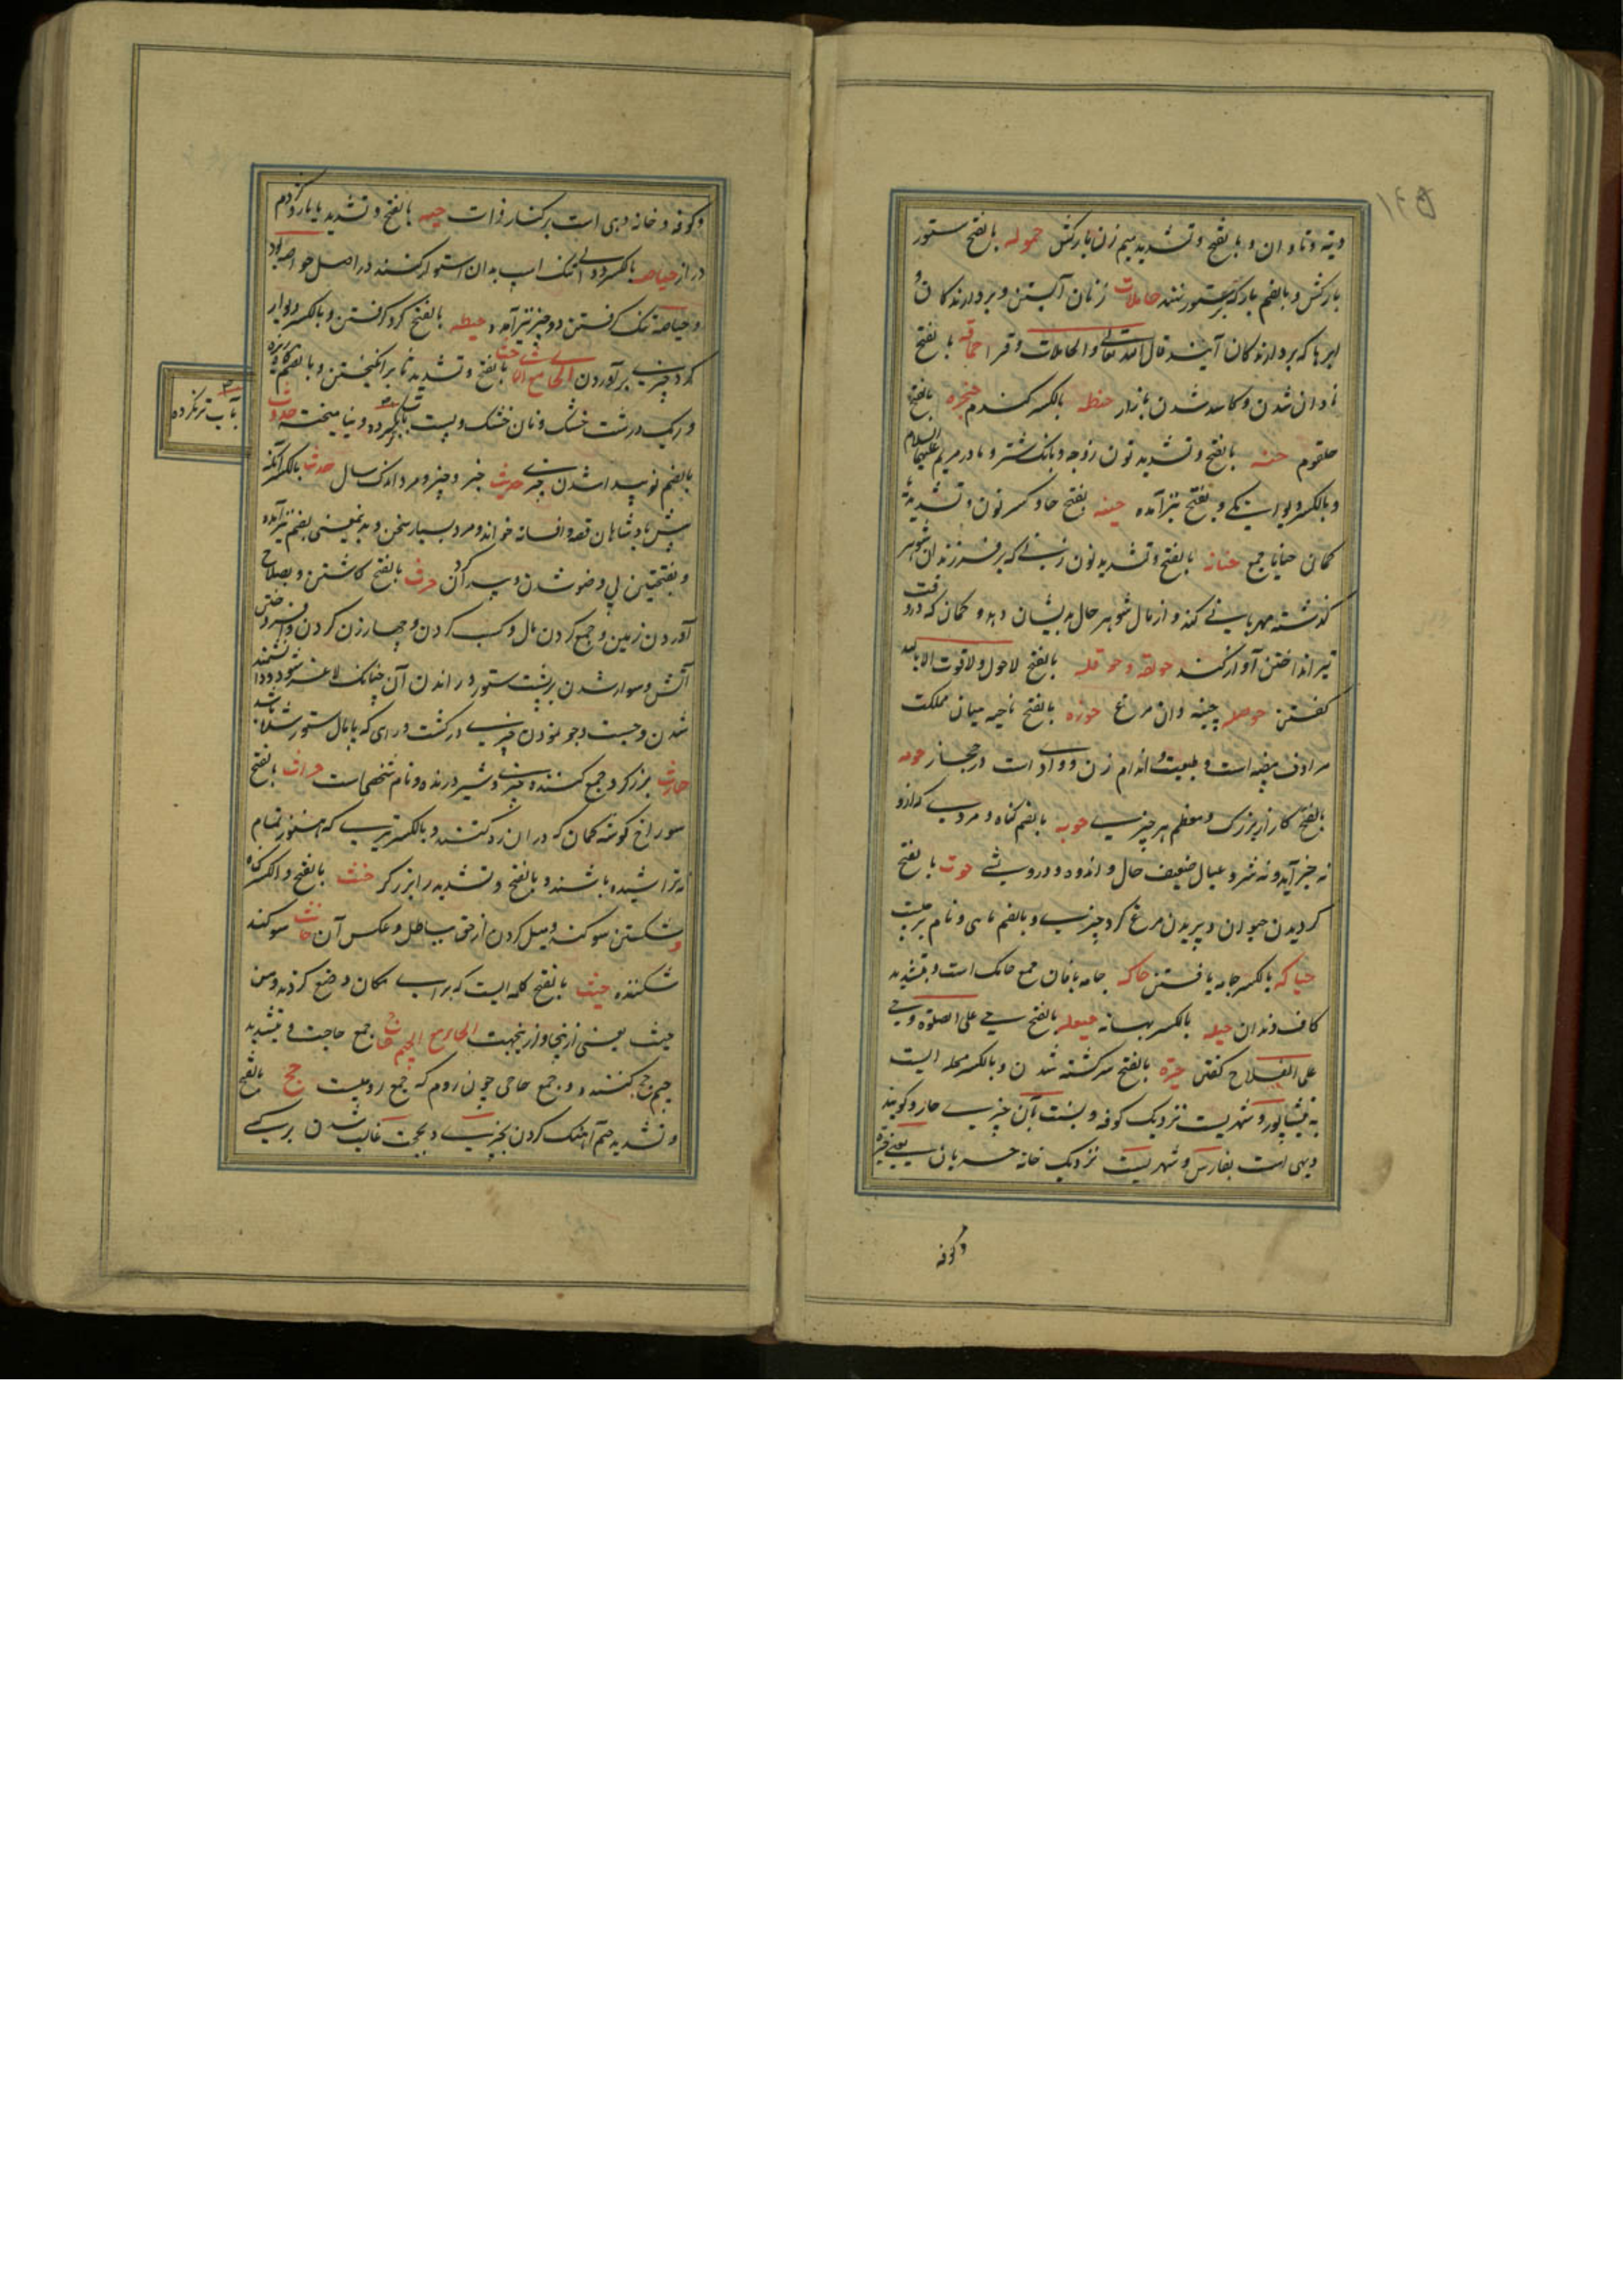 ۱۴۵
ودیة و تاوان و بالفتح و تشدید میم زن بارکش حموله بالفتح ستور
بارکش و بالضم بار که بر ستور نهند حاملات زنان آبستن و بردارندکان و
ابرها که بردارندکان آیند قال الله تعالی والحاملات وقرا حماقه بالفتح
نادان شدن و کاسد شدن بازار حنطه بالکسر کندم حنجره بالفتح
حلقوم حنه بالفتح و تشدید نون زوجه و بانک شتر و مادر مریم علیها السلام
و بالکسر دیوانکی و بفتح نیز آمده حنیه بفتح حا و کسر نون و تشدید یا
کمان حنایا جمع حنانه بالفتح و تشدید نون زنی که بر فرزندان شوهر
کذشته مهربانی کند و از مال شوهر حال بدیشان دهد و کمان که در وقت
تیر انداختن آواز کند حولقه و حوقله بالفتح لاحول ولا قوت الا بالله
کفتن حوصله چینه دان مرغ حوزه بالفتح ناحیه میان مملکت
مرادف بیضه است و طبیعت و اندام زن و وادی است در حجاز حومه
بالفتح کارزار بزرک و معظم هر چیزی حوبه بالضم کناه و مردی که ازو
نه خیر آید و نه شر و عیال ضعیف حال و اندوه و درویشی حوت بالفتح
کردیدن حیوان و پریدن مرغ کرد چیزی و بالضم ماهی و نام برجیست
حیاکه بالکسر جامه بافتن حاکه جامه بافان جمع حائک است و بتشدید
کاف دندان حیله بالکسر بهانه حیعله بالفتح حی علی الصلوة و حی
علی الفلاح کفتن حیره بالفتح سرکشته شدن و بالکسر محله ایست
به نیشاپور و شهریست نزدیک کوفه و نسبت بآن چیزی حاری کویند
و دیهی است بفارس و شهریست نزدیک خانه
وکوفه
وکوفه و خانه و دهی است بر کنار فرات حیه بالفتح و تشدید یا مار و کژدم
دراز حیاصه بالکسر دوالی که تنک اسپ بدان استوار کنند در اصل حواصه بود
و حیاصة تنک کرفتن دو چیز نیز آمده حیطه بالفتح کرد کرفتن و بالکسر دیوار
کرد چیزی برآوردن الحا مع الثا حث بالفتح و تشدید ثا برانکیختن و بالضم کاه ریزه
و ریک درشت خشک و نان خشک و پست بآب تر نکرده و نیامیخته حدوث
بآب تر نکرده
بالضم نو پیدا شدن چیزی حدیث خبر و چیز و مرد اندک سال حدث بالکسر آنکه
پیش پادشاهان قصه و افسانه خواند و مرد بسیار سخن و بدین معنی بضم نیز آمده
و بفتحتین بی وضو شدن و پیدا کردن حرث بالفتح کاشتن و بصلاح
آوردن زمین و جمع کردن مال و کسب کردن و چهار زن کردن و افروختن
آتش و سوار شدن بر پشت ستور و راندن آن چنانک لاغر شود و دانشمند
شدن و جست و جو نمودن چیزی در کشت و راهی که پامال ستور شده باشد
حارث برزکر و جمع کننده چیزی و شیر درنده و نام شخصی است حراث بالفتح
سوراخ کوشه کمان که در ان زه کنند و بالکسر تیری که هنوز تمام
نه تراشیده باشند و بالفتح و تشدید را برزکر حنث بالفتح و الکسر کناه
و شکستن سوکند و میل کردن از حق بباطل و عکس آن حانث سوکند
شکننده حیث بالفتح کلمه ایست که برای مکان وضع کرده و من
حیث یعنی ازینجا و ازینجهت الحا مع الجیم حاج جمع حاجت و بتشدید
جیم حج کننده و جمع حاجی چون روم که جمع رومیست حج بالفتح
و تشدید جیم آهنک کردن بچیزی و بحجت غالب شدن بر کسی